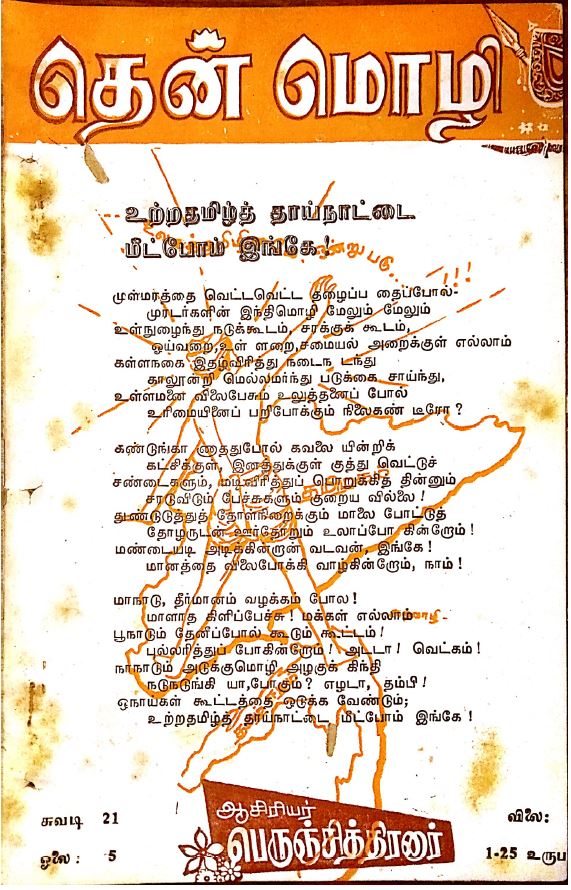 தென் மொழி
உற்றதமிழ்த் தாய்நாட்டை
மீட்போம் இங்கே!
முள்மரத்தை வெட்டவெட்ட தழைப்ப தைப்போல்-
முரடர்களின் இந்திமொழி மேலும் மேலும்
உள்நுழைந்து நடுக்கூடம், சரக்குக் கூடம்,
ஓய்வறை,உள் ளறை,சமையல் அறைக்குள் எல்லாம்
கள்ளநகை இதழ்விரித்து நடைந டந்து
காலூன்றி மெல்லமர்ந்து படுக்கை சாய்ந்து,
உள்ளமனை விலைபேசும் உலுத்தனைப் போல்
உரிமையினைப் பறிபோக்கும் நிலைகண் டீரோ?
கண்டுங்கா ணாத்துபோல் கவலை யின்றிக்
கட்சிக்குள், இனத்துக்குள் குத்து வெட்டுச்
சண்டைகளும், மடிவிரித்துப் பொறுக்கித் தின்னும்
சரடுவிடும் பேச்சுகளும் குறைய வில்லை!
துண்டுடுத்துத் தோள்நிறைக்கும் மாலை போட்டுத்
தோழருடன் ஊர்தோறும் உலாப்போ கின்றோம்!
மண்டையடி அடிக்கின்றான் வடவன், இங்கே!
மானத்தை விலைபோக்கி வாழ்கின்றோம், நாம்!
மாநாடு, தீர்மானம் வழக்கம் போல!
மாளாத கிளிப்பேச்சு! மக்கள் எல்லாம்
பூநாடும் தேனீப்போல் கூடும் கூட்டம்!
புல்லரித்துப் போகின்றோம்! அடடா! வெட்கம்!
நாநாடும் அடுக்குமொழி அழகுக் கிந்தி
நடுநடுங்கி யா,போகும்? எழடா, தம்பி!
ஓநாய்கள் கூட்டத்தை ஒடுக்க வேண்டும்;
உற்றதமிழ்த் தாய்நாட்டை மீட்போம் இங்கே!
தமிழகம்
ஆசிரியர்
பெருஞ்சித்திரனார்
சுவடி 21
விலை:
ஓலை : 5
1-25 உருபா